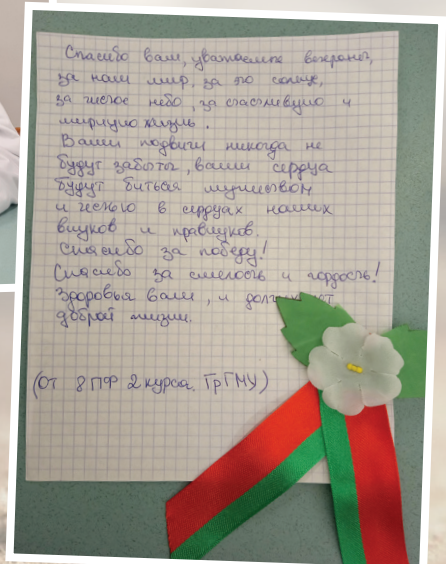 Спасибо вам, уважаемые ветераны,
за наш мир, за это солнце,
за чистое небо, за счастливую и
мирную жизнь.
Ваши подвиги никогда не
будут забыты, ваши сердца
будут биться мужеством
и честью в сердцах наших
внуков и правнуков.
Спасибо за победу!
Спасибо за смелость и гордость!
Здоровья вам, и
доброй жизни.
(От 8ПФ 2 курса. ГрГМУ)